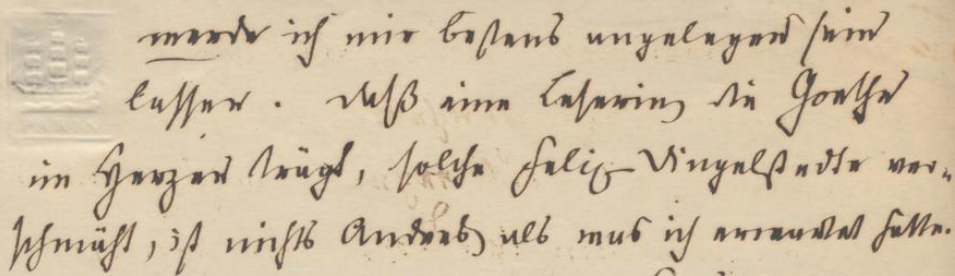 werde ich mir bestens angelegen sein
lassen. Daß eine Leserin, die Goethe
im Herzen trägt, solche Felix Dingelstedte ver-
schmäht, ist nichts Anders, als was ich erwartet hatte.